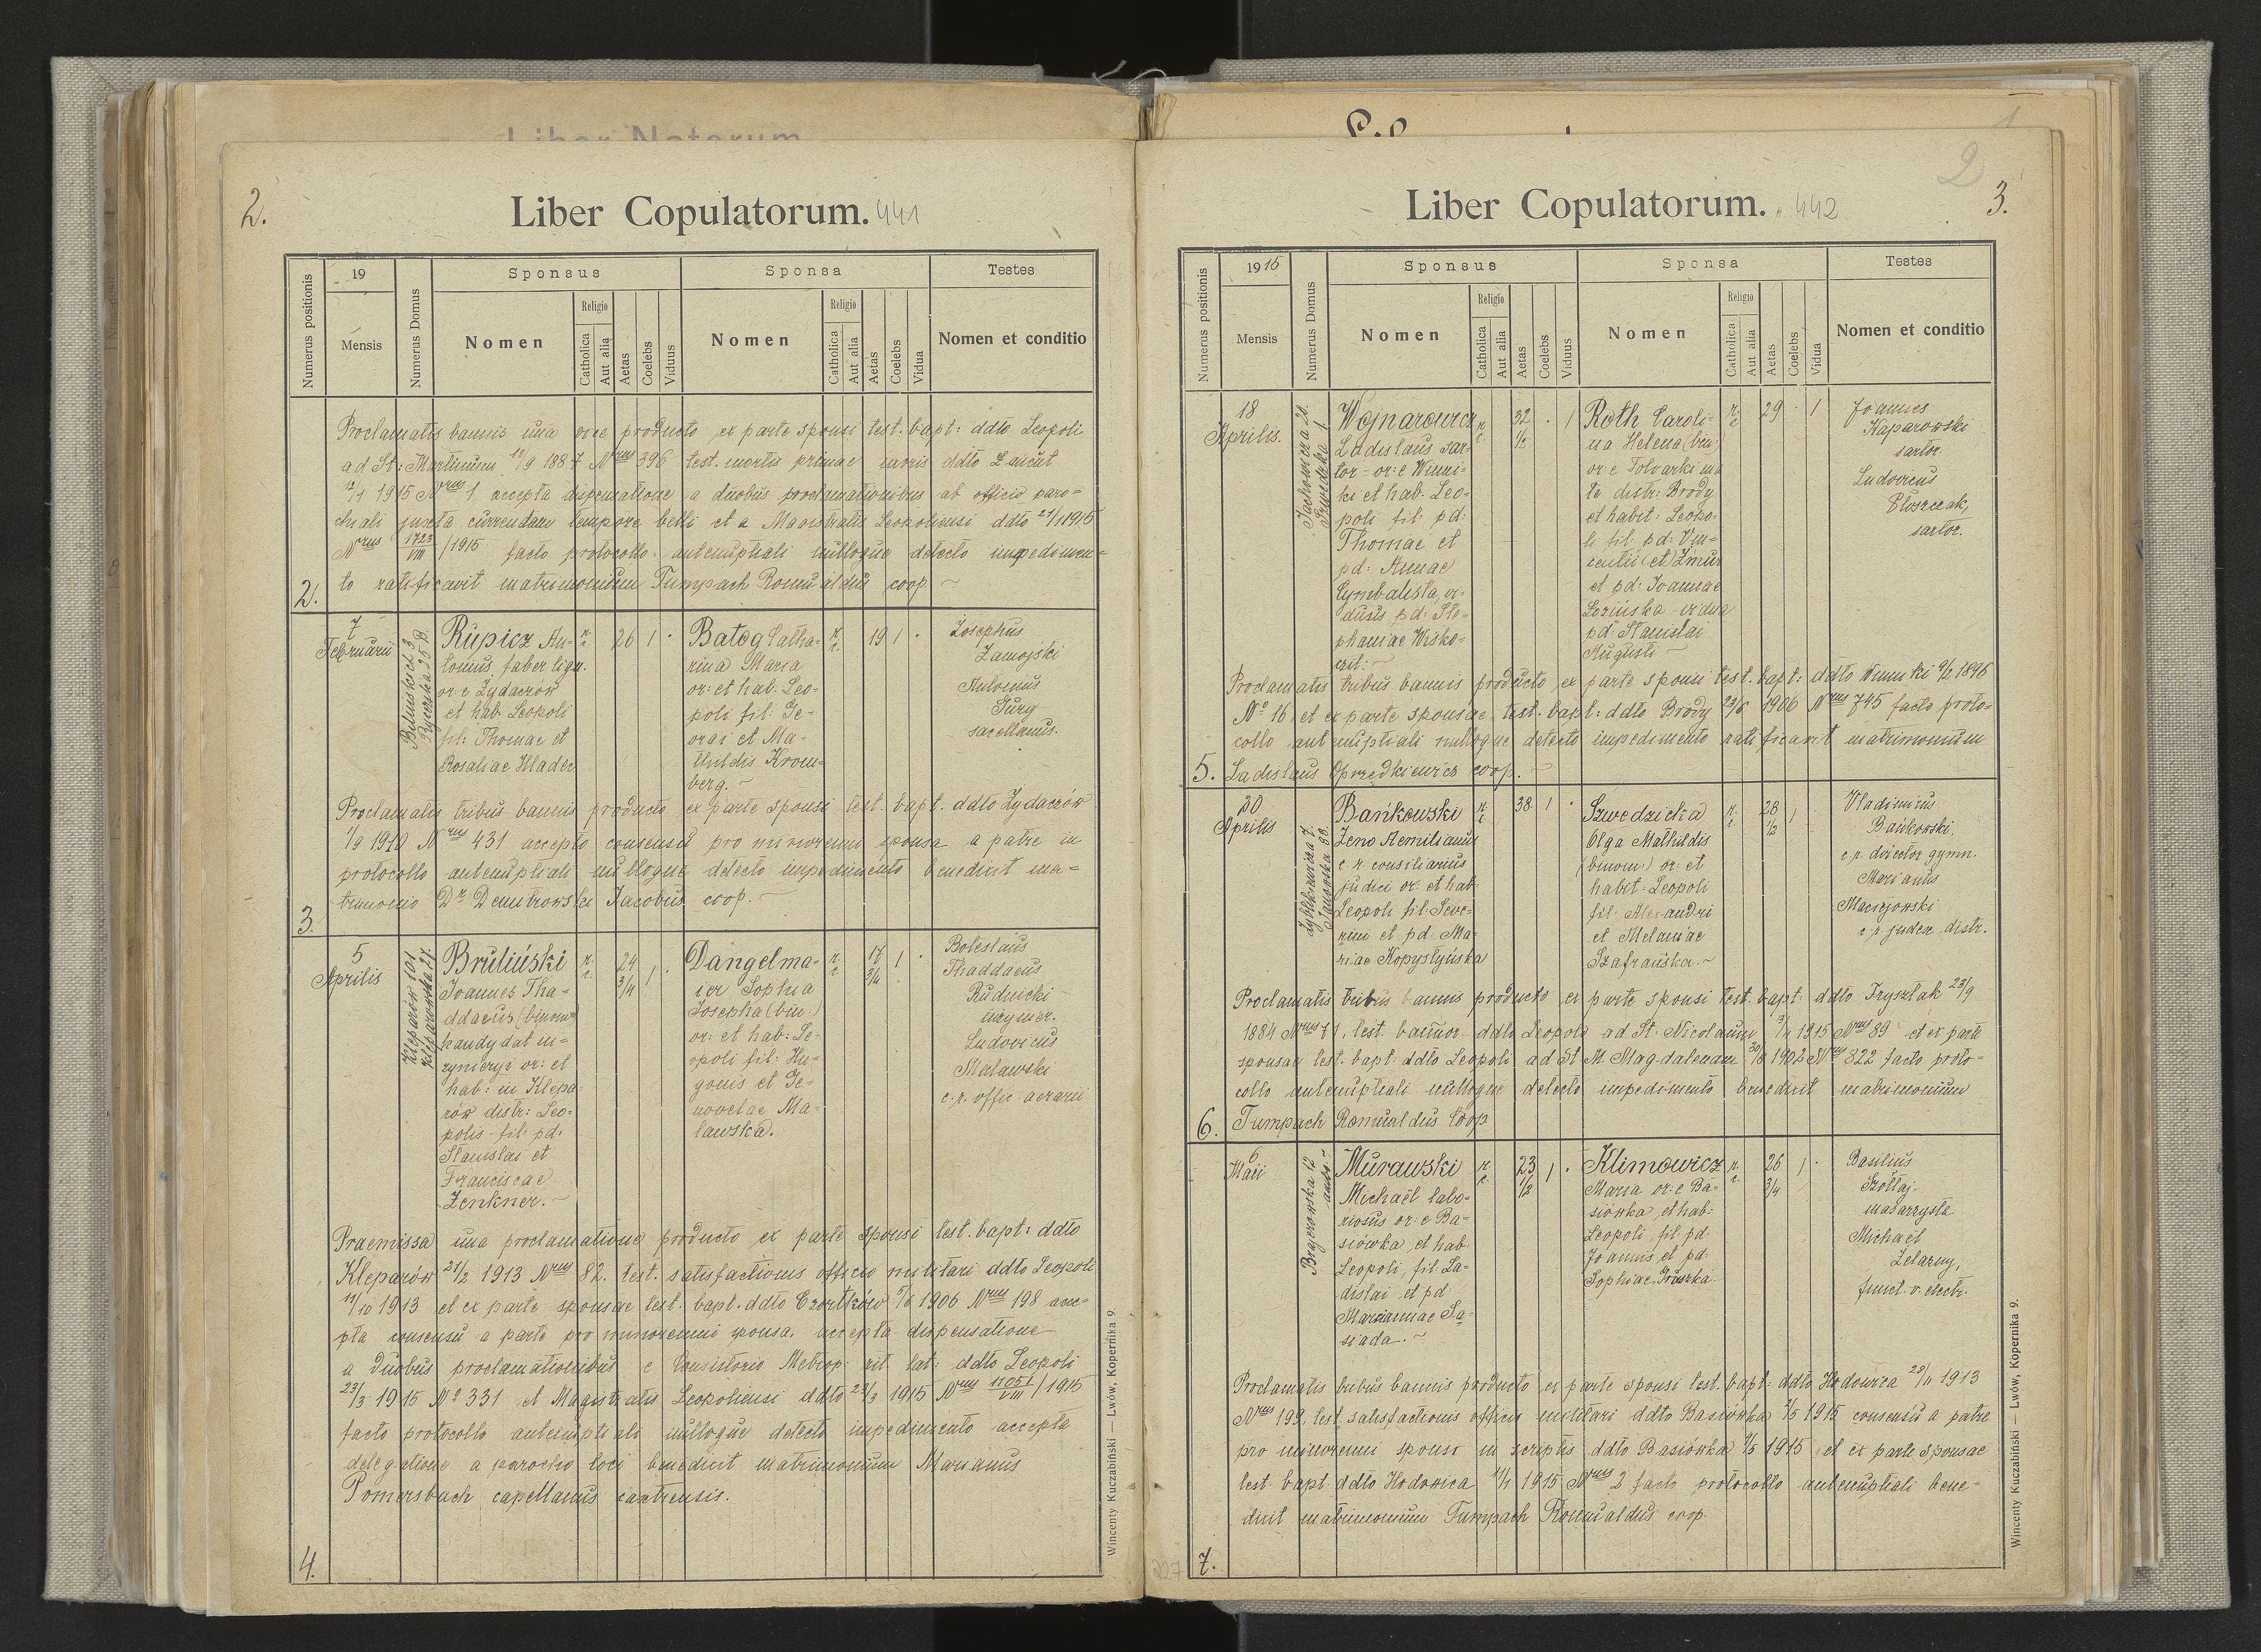 Liber Notarum
2.
Liber Copulatorum. 441
Numerus positionis
19
Mensis
Numerus Domus
Sponsus
Nomen
Religio
Catholica
Aut alia
Aetas
Coelebs
Viduus
Sponsa
Nomen
Religio
Catholica
Aut alia
Aetas
Coelebs
Vidua
Testes
Nomen et conditio
Proclamatis bannis una vice producto ex parte sponsi test. bapt: ddto Leopoli
ad St: Martinum 19/9 1887 Nrus 396 test. mortis primae uxoris ddto Łańcut
1915 Nrus 1. accepta dispensatione a duobus proclamationibus ab officio paro=
chiali juxta currendam tempore belli et a Magistratu Leopoliensi ddto 27/1 1915
Nrus 1723/VIII /1915 facto protocollo antenuptiali nulloque detecto impedimen=
to ratificavit matrimonium Tumpach Romualdus coop.
2.
7
Februarii
Bilińskich 3
Rycerska 25 B.
Rupicz An=
tonius faber lign.
or: e Żydaczów
et hab. Leopoli
fil: Thomae et
Rosaliae Hlader
r. c.
26
1
Batog Catha=
rina Maria
or: et hab. Leo=
poli fil: Ge=
orgi et Ma=
thildis Krom=
berg.
r. c.
19
1
Josephus
Zamojski
Antonius
Jury
sacellanus.
Proclamatis tribus bannis producto ex parte sponsi test. bapt. ddto Żydaczów
1/9 1910 Nrus 431 accepto consensu pro minorenni sponsa a patre in
protocollo antenuptiali nulloque detecto impedimento benedixit ma=
trimonio Dr Demitrowski Jacobus coop.
3.
5
Aprilis
Kleparów 101
Kleparowska 27.
Bruliński
Joannes Tha=
ddaeus (binom)
kandydat in=
żynieryi or: et
hab: in Klepa=
rów distr: Leo=
polis fil: pd:
Stanislai et
Franciscae
Zenkner.
r. c.
24 3/4
1
Dangelma=
ier Sophia
Josepha (bin:)
or: et hab: Le=
opoli fil: Hu=
gonis et Ge=
novefae Ma=
lawska.
r. c.
17 3/4
1
Boleslaus
Thaddaeus
Rudnicki
inżynier.
Ludovicus
Malawski
c. r. offic. aerarii
Praemissa una proclamatione producto ex parte sponsi test. bapt: ddto
Kleparów 21/2 1913 Nrus 82. test. satisfactionis officio militari ddto Leopoli
17/10 1913 et ex parte sponsae test. bapt. ddto Czortków 5/6 1906 Nrus 198 acce=
pta consensu a parte pro minorenni sponsa. accepta dispensatione
a duobus proclamationibus e Consistorio Metrop: rit. lat: ddto Leopoli
23/3 1915 No 331 et Magistratu Leopoliensi ddto 23/3 1915 Nrus 11051/VIII /1915
facto protocollo antenuptiali nulloque detecto impedimento accepta
delegatione a parocho loci benedixit matrimonium Marianus
Pomersbach capellanus castrensis.
4.
Wincenty Kuczabiński — Lwów, Kopernika 9
2
3.
Liber Copulatorum. 442
Numerus positionis
1915
Mensis
Numerus Domus
Sponsus
Nomen
Religio
Catholica
Aut alia
Aetas
Coelebs
Viduus
Sponsa
Nomen
Religio
Catholica
Aut alia
Aetas
Coelebs
Vidua
Testes
Nomen et conditio
18
Aprilis.
Jachowicza 20.
Szwedzka 1.
Wojnarowicz
Ladislaus sar=
tor or: e Winni=
ki et hab. Leo=
poli fil: pd:
Thomae et
pd: Annae
Cymbalista, vi=
duus pd: Ste=
phaniae Wisko=
cril:
r. c.
32 1/2
1
Roth Caroli=
na Helena (bin)
or: e Folwarki ma
te distr: Brody
et habit: Leopo=
li fil: pd: Vin=
centii (et) Żmur
et pd: Joannae
Łozińska vidua
pd: Stanislai
Augusti
r. c.
29
1
Joannes
Kaparowski
sartor.
Ludovicus
Płoszczak,
sartor.
Proclamatis tribus bannis producto ex parte sponsi test. bapt: ddto Winniki 9/2 1896
No 16 et ex parte sponsae test. bapt: ddto Brody 23/6 1906 Nrus 745 facto proto=
collo antenuptiali nulloque detecto impedimento ratificavit matrimonium
5. Ladislaus Oprzedkiewicz coop.
20
Aprilis
Zyblikiewicza 7.
Janowska 88.
Bańkowski
Zeno Aemilianus
c. r. consiliarius
judici or: et hab
Leopoli fil. Seve=
rini et pd: Ma=
riae Kopystyńska
r. c.
38
1
Szwedzicka
Olga Mathildis
(binom:) or: et
habit: Leopoli
fil: Alexandri
et Melaniae
Szafrańska.
r. c.
28 1/2
1
Vladimirus
Bańkowski
c. r. director gymn.
Marianus
Maciejowski
c. r. judex distr.
Proclamatis tribus bannis producto ex parte sponsi test. bapt: ddto Frysztak 23/9
1884 Nrus 71, test. bannor. ddto Leopoli ad St. Nicolaum 1915 Nrus 89 et ex parte
sponsae test. bapt: ddto Leopoli ad St. M. Magdalenam 30/8 1902 Nrus 822 facto proto=
collo antenuptiali nulloque detecto impedimento benedixit matrimonium
6. Tumpach Romualdus Coop
6
Maii
Bogerowska 12
ambo
Murawski
Michaël labo=
riosus or: e Ba=
siówka et hab.
Leopoli, fil La=
dislai et pd:
Marianniae Są=
siada.
r. c.
23 1/2
1
Klimowicz
Maria or: e Ba=
siówka et hab:
Leopoli, fil: pd:
Joannis et pd:
Sophiae Gruszka.
r. c.
26 3/4
1
Basilius
Szőłłaj
masarzysta
Michaël
Żelazny,
funct. v. electr.
Proclamatis tribus bannis producto ex parte sponsi test. bapt: ddto Hodowica 28/11 1913
Nrus 199, test. satisfactionis officii militari ddto Basiówka 2/5 1915 consensu a patre
pro minorenni sponso in scriptis ddto Basiówka 1/5 1915 et ex parte sponsae
test. bapt. ddto Hodowica 11/1 1915 Nrus 2 facto protocollo antenuptiali bene=
dixit matrimonium Tumpach Romualdus coop.
7.
Wincenty Kuczabiński — Lwów, Kopernika 9.